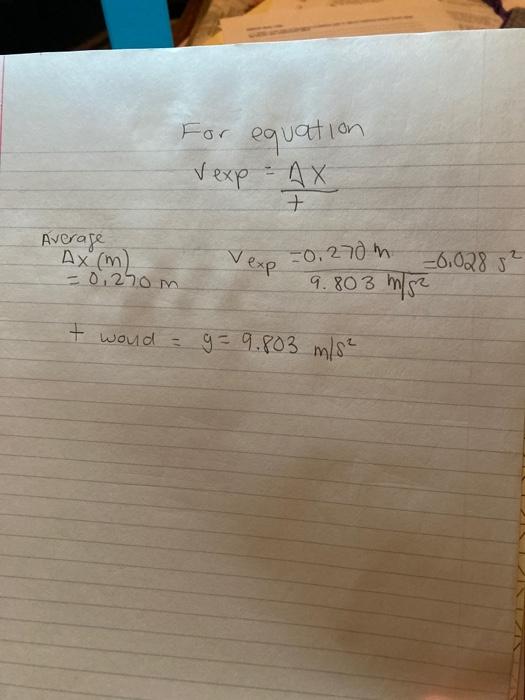 For equation
Vexp = ΔX
t
Average
Δx (m)
= 0.270 m
Vexp = 0.270 m = 0.028 s²
9.803 m/s²
t woud = g = 9.803 m/s²